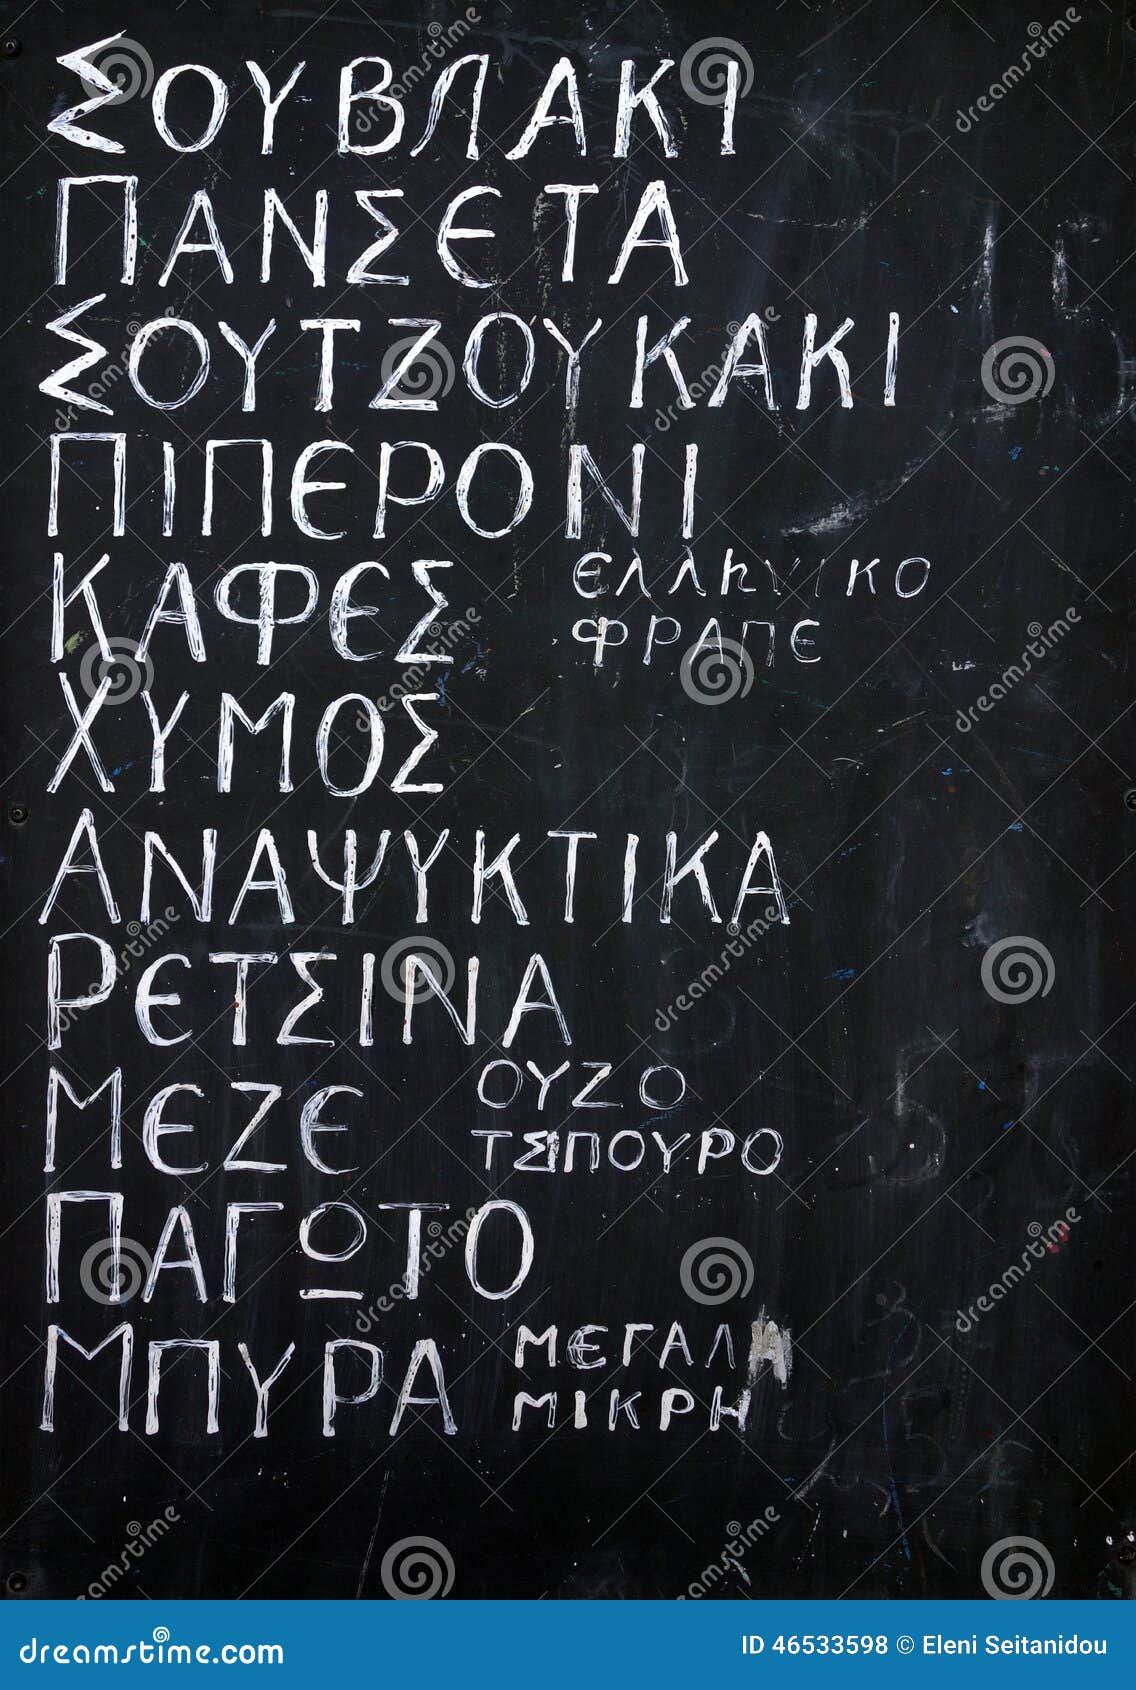 ΣΟΥΒΛΑΚΙ
ΠΑΝΣΕΤΑ
ΣΟΥΤΖΟΥΚΑΚΙ
ΠΙΠΕΡΟΝΙ
ΚΑΦΕΣ ΕΛΛhΝΙΚΟ
ΦΡΑΠΕ
ΧΥΜΟΣ
ΑΝΑΨΥΚΤΙΚΑ
ΡΕΤΣΙΝΑ
ΜΕΖΕ ΟΥΖΟ
ΤΣΙΠΟΥΡΟ
ΠΑΓΩΤΟ
ΜΠΥΡΑ ΜΕΓΑΛΗ
ΜΙΚΡΗ
dreamstime.com ID 46533598 © Eleni Seitanidou